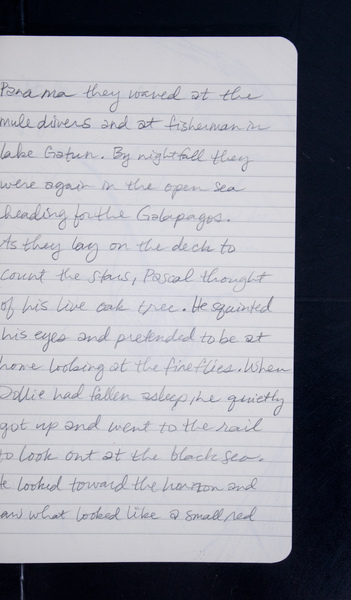 Panama they waved at the
mule drivers and at fisherman in
lake Gatun. By nightfall they
were again in the open sea
heading for the Galapagos.
As they lay on the deck to
count the stars, Pascal thought
of his live oak tree. He squinted
his eyes and pretended to be at
home looking at the fireflies. When
Dollie had fallen asleep, he quietly
got up and went to the rail
to look out at the black sea.
He looked toward the horizon and
saw what looked like a small red